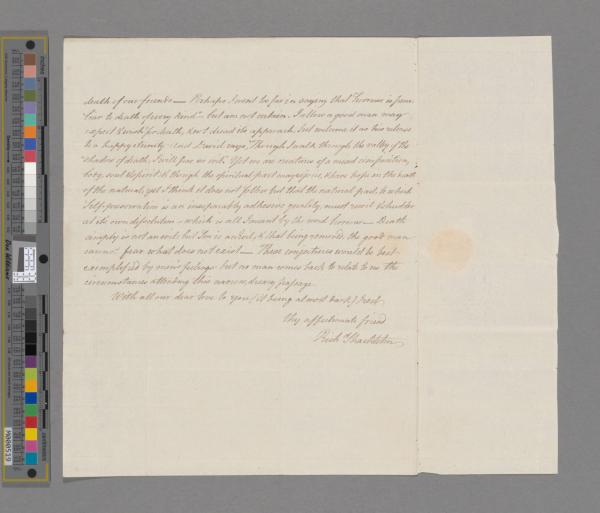 death of our friends — Perhaps I went too far in saying that Horrour is peculiar
to death of every kind — but am not certain. I allow a good man may
expect & wish for death, & not dread its approach, but welcome it as his release
to a happy eternity: and David says, Though I walk through the valley of the
shadow of death, I will fear no evil. Yet we are creatures of a mixed composition,
body, soul & spirit: & though the spiritual part may rejoice, & have hope in the death
of the natural, yet I think it does not follow but that the natural part, to which
Self-preservation is an inseparably adhesive quality, must revolt & shudder
at its own dissolution — which is all I meant by the word horrour — Death
simply is not an evil: but Sin is an evil, & that being removed, the good man
cannot fear what does not exist — These conjectures would be best
exemplified by men's feelings: but no man comes back to relate to us the
circumstances attending this narrow, dreary passage.
With all our dear love to you, (it being almost dark) I rest
thy affectionate friend
Rich Shackleton